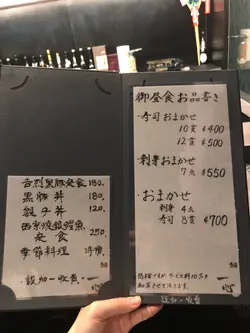 吉烈黑豚定食 180.
黑豚丼 180.
親子丼 120.
西京燒銀鱈魚
定食 250.
季節料理 時價.
設加一收費
御昼食お品書き
・寿司おまかせ
10貫 ¥400
12貫 ¥500
・刺身おまかせ
7点 ¥550
・おまかせ
刺身 4点
寿司 8貫 ¥700
設加一收費